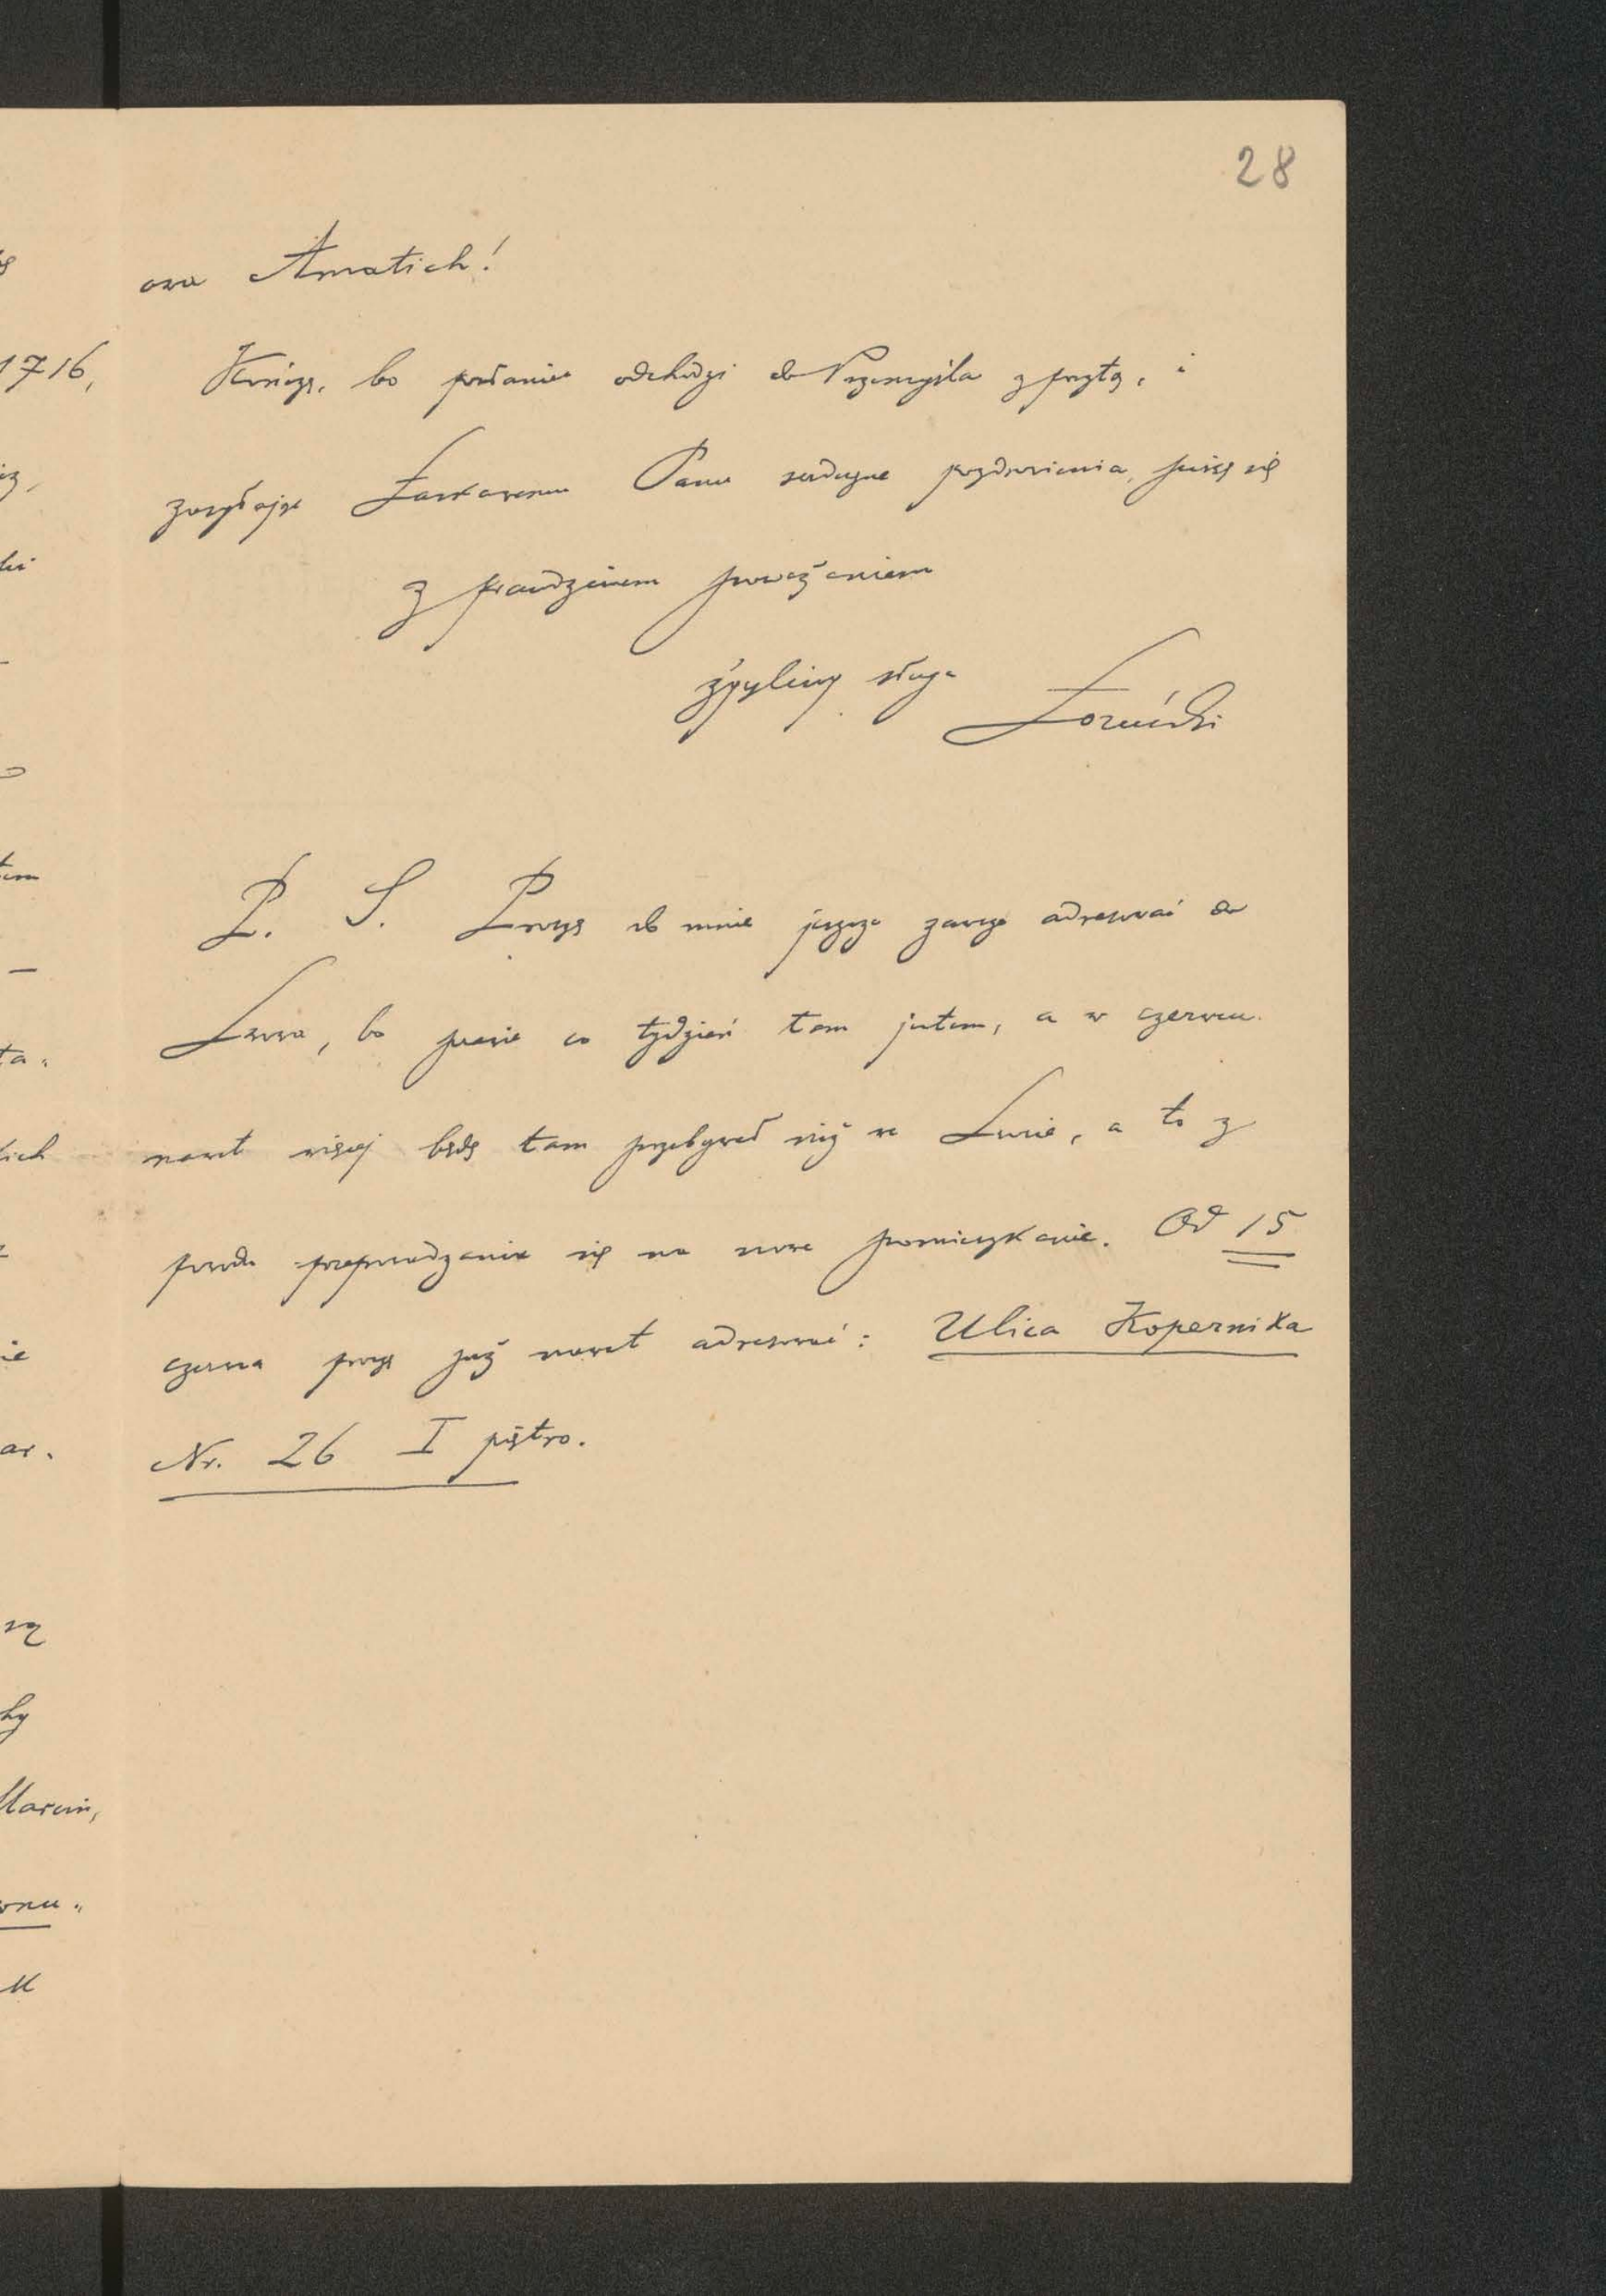 28
ova Amatich!
Kończę, bo posłaniec odchodzi do Przemyśla z pocztą, i
zasyłając Łaskawemu Panu serdeczne pozdrowienia, piszę się
z prawdziwem poważaniem
życzliwy sługa Łoziński
P. S. Proszę do mnie jeszcze zawsze adresować do
Lwowa, bo prawie co tydzień tam jestem, a w czerwcu
nawet więcej będę tam przebywał niż w, a to z
powodu przeprowadzenia się na nowe pomieszkanie. Od 15
czerwca proszę już nawet adresować: Ulica Kopernika
Nr. 26 I piętro.
1716,
Marcin,